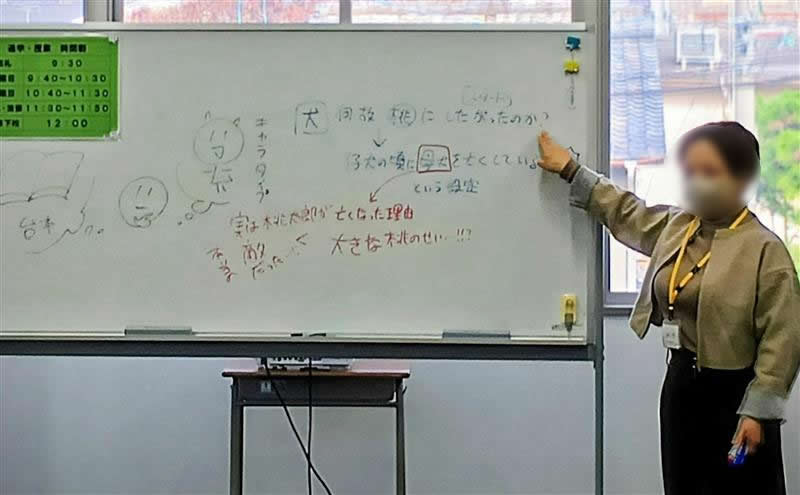 通学・授業 時間割
9:30
9:40~10:30
10:40~11:30
11:30~11:50
下校 12:00
台本
キャラクタブ
犬 何故 桃にしたがったのか?
↓
仔犬の頃に母犬を亡くしている
という設定
実は桃太郎が亡くなった理由
大きな桃のせい…!!?
敵
だった…